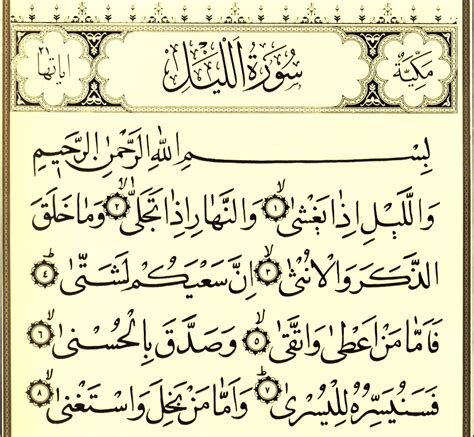 مكيّة سُورَةُ اللَّيْلِ اياتها ٢١
بِسْمِ اللهِ الرَّحْمٰنِ الرَّحِيمِ
وَاللَّيْلِ اِذَا يَغْشٰىۙ ﴿١﴾ وَالنَّهَارِ اِذَا تَجَلّٰىۙ ﴿٢﴾ وَمَا خَلَقَ
الذَّكَرَ وَالْاُنْثٰىۙ ﴿٣﴾ اِنَّ سَعْيَكُمْ لَشَتّٰىۜ ﴿٤﴾
فَاَمَّا مَنْ اَعْطٰى وَاتَّقٰىۙ ﴿٥﴾ وَصَدَّقَ بِالْحُسْنٰىۙ ﴿٦﴾
فَسَنُيَسِّرُهُ لِلْيُسْرٰىۜ ﴿٧﴾ وَاَمَّا مَنْ بَخِلَ وَاسْتَغْنٰىۙ ﴿٨﴾